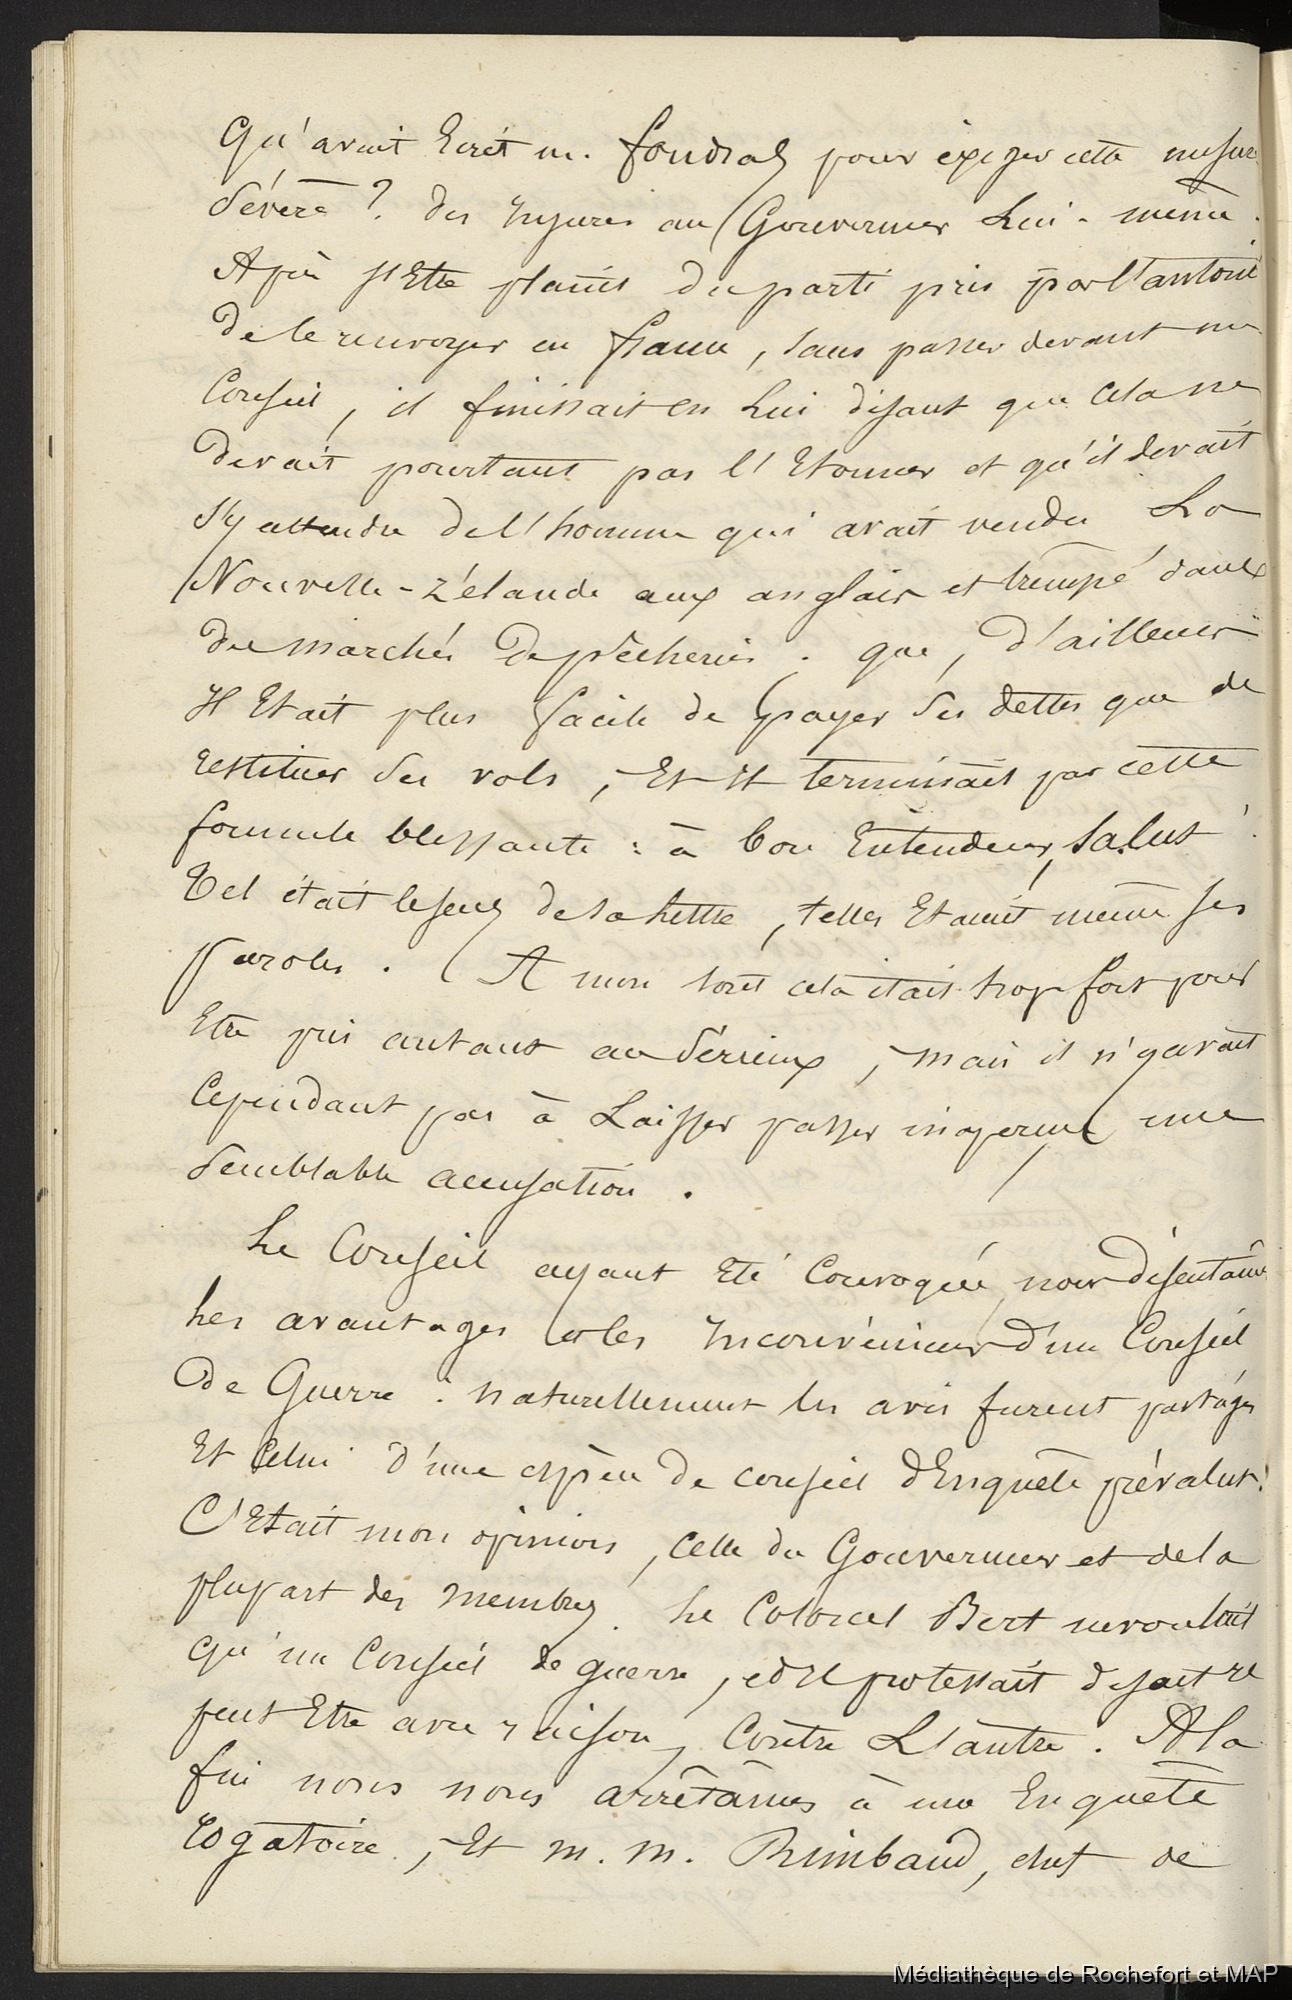 Qu'avait Ecrit m. foudras pour éxiger cette mesure
Sévère ? des Injures au Gouverneur Lui-même.
Après s'Etre plaint du parti pris par l'autorité
De le renvoyer en france, sans passer devant un
Conseil, il finissait en Lui disant que cela ne
Devait pourtant pas l'Etonner et qu'il devait
s'y attendre de l'homme qui avait vendu La
Nouvelle-Zélande aux anglais et trempé dans
des marchés De pêcheries. que, d'ailleurs
Il Etait plus facile de payer Ses dettes que de
restituer Ses vols, Et Il terminait par cette
formule blessante : à bon Entendeur, Salut !
Tel était le sens de la lettre, telles Etaient même ses
paroles. A mon sens cela était trop fort pour
Etre pris autant au Sérieux, mais il n'y avait
Cependant pas à Laisser passer inaperçue une
Semblable accusation.
Le Conseil ayant Eté Convoqué, nous Discutâmes
Les avantages et les Inconvénients D'un Conseil
De Guerre. naturellement les avis furent partagés
Et Celui D'une espèce De conseil d'Enquête prévalut.
C'Etait mon opinion, Celle du Gouverneur et de la
plupart des membres. Le Colonel Bert ne voulait
qu'un Conseil de guerre, et Il protestait disait il
peut Etre avec raison, Contre L'autre. A la
fin nous nous arrêtâmes à une Enquête
rogatoire, Et m. m. Rimbaud, chef de
Médiathèque de Rochefort et MAP